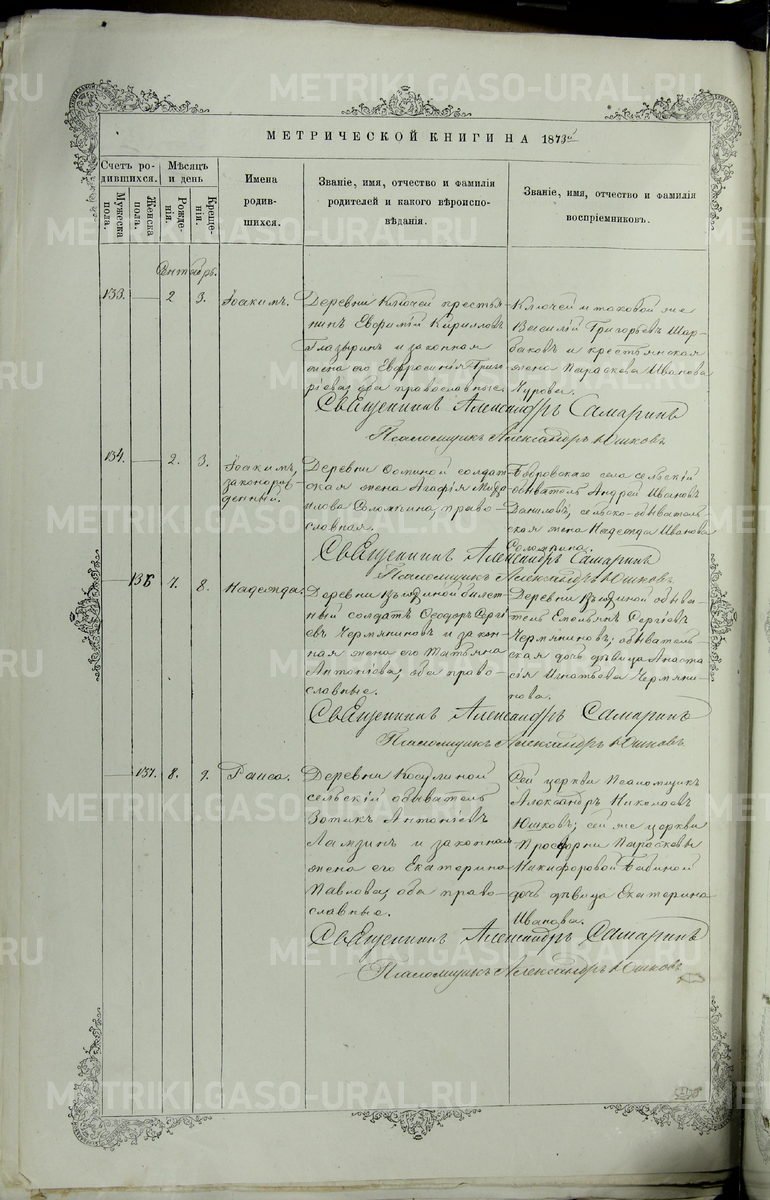 METRIKI.GASO-URAL.RU
МЕТРИЧЕСКОЙ КНИГИ НА 1873й
Счетъ ро-
дившихся.
Мужеска
пола.
Женска
пола.
Мѣсяцъ
и день
Рожде-
нія.
Креще-
нія.
Имена
родив-
шихся.
Званіе, имя, отчество и фамилія
родителей и какого вѣроиспо-
вѣданія.
Званіе, имя, отчество и фамилія
воспріемниковъ.
Сентябрь.
133. 2 3. Іоакимъ.
Деревни Ключей крестья-
нинъ Евфимій Кирилловъ
Глазыринъ и законная
жена его Евфросинія Григо-
ріева; оба православные.
Ключей и таковой же
Василій Григорьевъ Шар-
баковъ и крестьянская
жена Параскева Иванова
Чурова.
Священникъ Александръ Самаринъ
Псаломщикъ Александръ Юшковъ
134. 2. 3. Іоакимъ,
незаконорож-
денный.
Деревни солдат-
ская жена Агафія
православная.
Бобровскаго села сельскій
обыватель Андрей Ивановъ
Даниловъ; сельско-обыватель-
ская жена Надежда Иванова
Священникъ Александръ Самаринъ
Псаломщикъ Александръ Юшковъ.
136 7. 8. Надежда.
Деревни билет-
ный солдатъ Ѳеодоръ Сергі-
евъ Чермяниновъ и закон-
ная жена его Татьяна
Антоніева; оба право-
славные.
Деревни обыва-
тель Емельянъ Сергіевъ
Чермяниновъ; обыватель-
ская дочь дѣвица Анаста-
сія Игнатьева Чермяни-
нова.
Священникъ Александръ Самаринъ
Псаломщикъ Александръ Юшковъ
137. 8. 9. Раиса.
Деревни Косулиной
сельскій обыватель
Зотикъ Антоніевъ
Ламзинъ и законная
жена его Екатерина
Павлова; оба право-
славные.
Сей церкви Псаломщикъ
Александръ Николаевъ
Юшковъ; сей же церкви
Просфорни Параскевы
Никифоровой Бабиной
дочь дѣвица Екатерина
Иванова.
Священникъ Александръ Самаринъ
Псаломщикъ Александръ Юшковъ